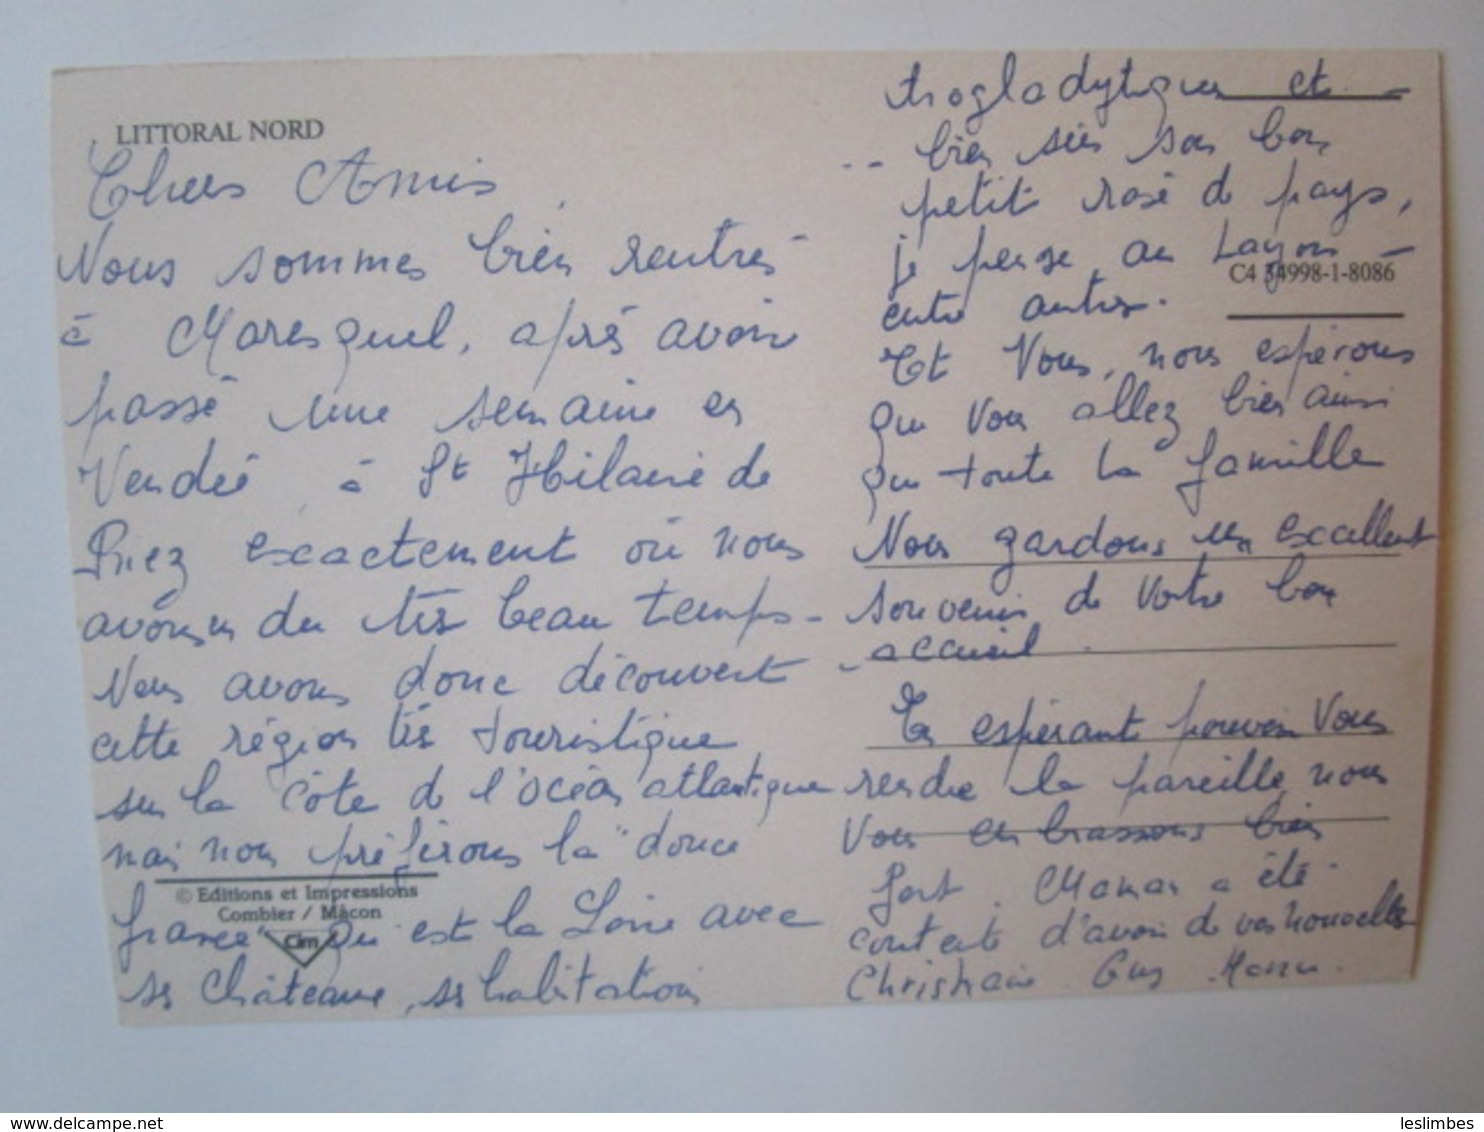 LITTORAL NORD
Chers Amis,
Nous sommes bien rentrés
à Maresquel, après avoir
passé une semaine en
Vendée à St Hilaire de
Riez exactement où nous
avons eu du très beau temps -
Nous avons donc découvert
cette région très touristique
sur la côte de l'océan atlantique
mais nous préférons la "douce
© Editions et Impressions
Combier / Mâcon
france" qui est la Loire avec
Cim
ses Châteaux, ses habitations
troglodytiques et -
.. bien sûr son bon
petit rosé de pays,
je pense au Layon -
C4 34998-1-8086
entre autres.
Et Vous, nous espérons
que vous allez bien ainsi
que toute la famille
Nous gardons un excellent
souvenir de votre bon
accueil.
En espérant pouvoir Vous
rendre la pareille, nous
Vous embrassons bien
fort. Maman a été
contente d'avoir de vos nouvelles
Christiane Guy Manu.
leslimbes